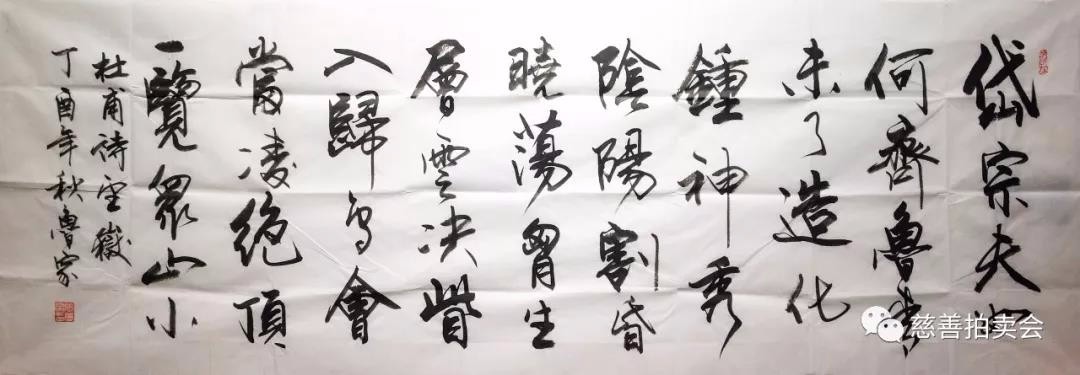 岱宗夫如
何齊魯青
未了造化
鍾神秀
陰陽割昏
曉蕩胷生
層雲決眥
入歸鸟會
當凌絶頂
一覽眾山小
杜甫诗望嶽
丁酉年秋魯家
慈善拍卖会